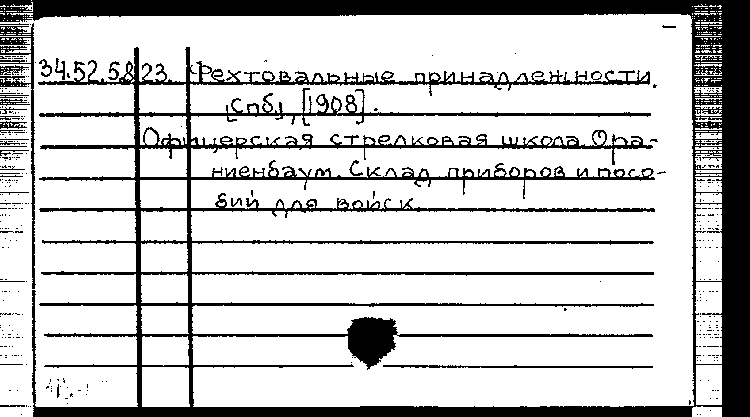 34.52.5.823. Фехтовальные принадлежности.
[Спб], [1908].
Офицерская стрелковая школа. Ора-
ниенбаум. Склад приборов и посо-
бий для войск.